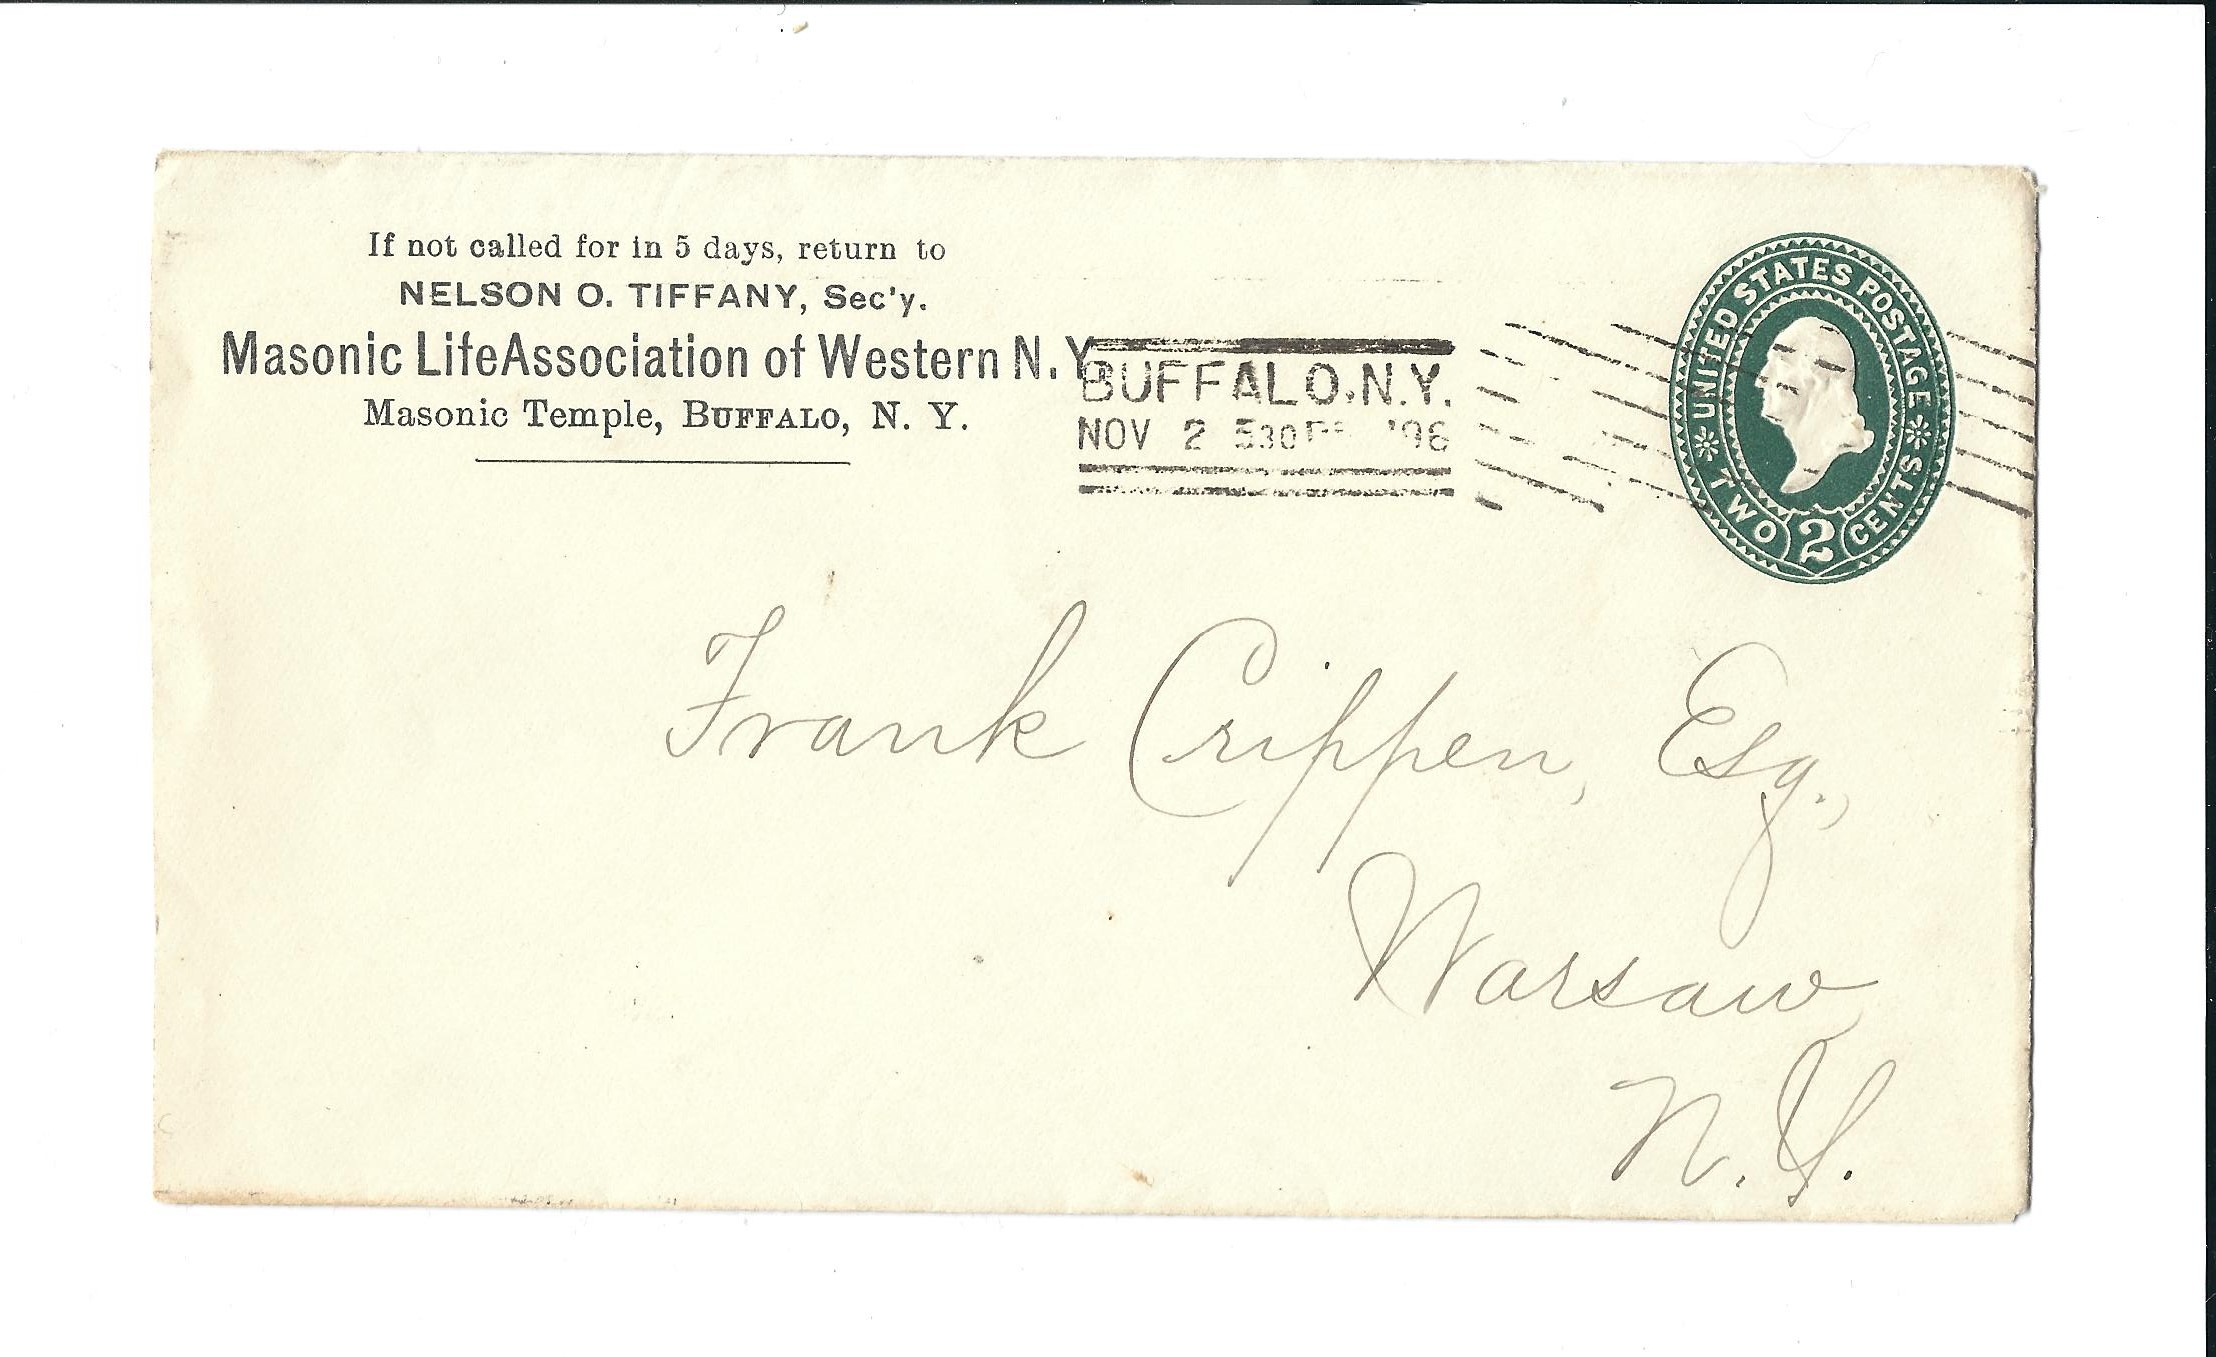 If not called for in 5 days, return to
NELSON O. TIFFANY, Sec'y.
Masonic Life Association of Western N.Y.
Masonic Temple, BUFFALO, N. Y.
BUFFALO, N.Y.
NOV 2 530 '96
UNITED STATES POSTAGE
TWO 2 CENTS
Frank Crippen, Esq.,
Warsaw,
N.Y.